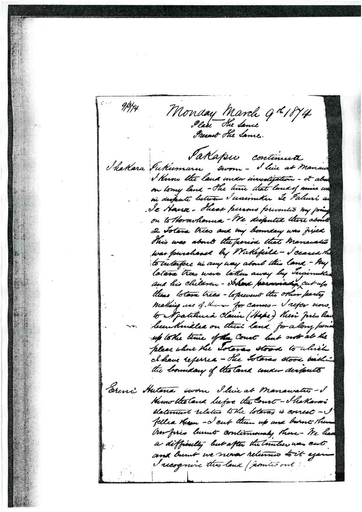 9/3/74
Monday March 9th 1874
Place the Same
Present the Same.
Takapu continued
Ihakara Tukumaru sworn - I live at Manawa
I know the land under investigation - it
on to my land - The time that land of mine was
in dispute between
Te Hama - These persons prevented my going
on to Horowhenua - We disputed there about
the Totara trees and my boundary was fixed
This was about the period that Manawatu
was purchased by Wakefield - I ceased then
to interfere in any way about this land - My
totara trees were taken away by
and his children - I have cut up
these totara trees - to prevent the other party
making use of them for canoes - I refer now
to claim (Hapu) their fires have
been kindled on their land for a long period
up to the time of the Court but not at the
place where the totaras stood to which
I have referred - The totaras stood within
the boundary of the land under dispute
Hutana sworn I live at Manawatu - I
know the land before the Court - Ihakara's
statement relative to the totaras is correct - I
felled them - I cut them up and burnt them
Our fires burnt continuously there - We had
a difficulty but after the timber was cut
and burnt we never returned to it again
I recognise this land (pointed out